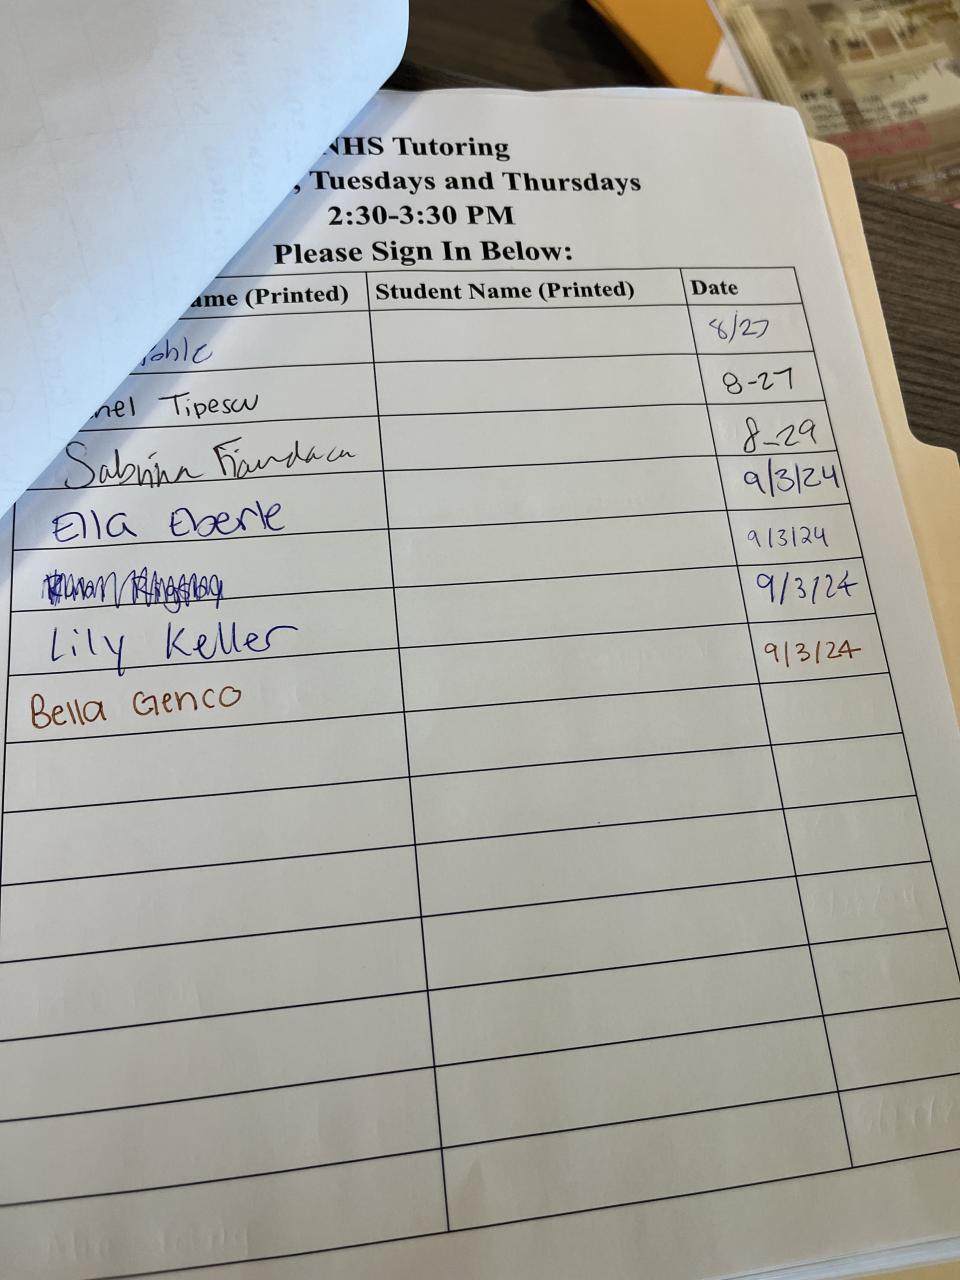 NHS Tutoring
, Tuesdays and Thursdays
2:30-3:30 PM
Please Sign In Below:
ame (Printed) Student Name (Printed) Date
8/27
nel Tipescu 8-27
Sabrina Fiandaca 8-29
Ella Eberle 9/3/24
9/3/24
Lily Keller 9/3/24
Bella Genco 9/3/24